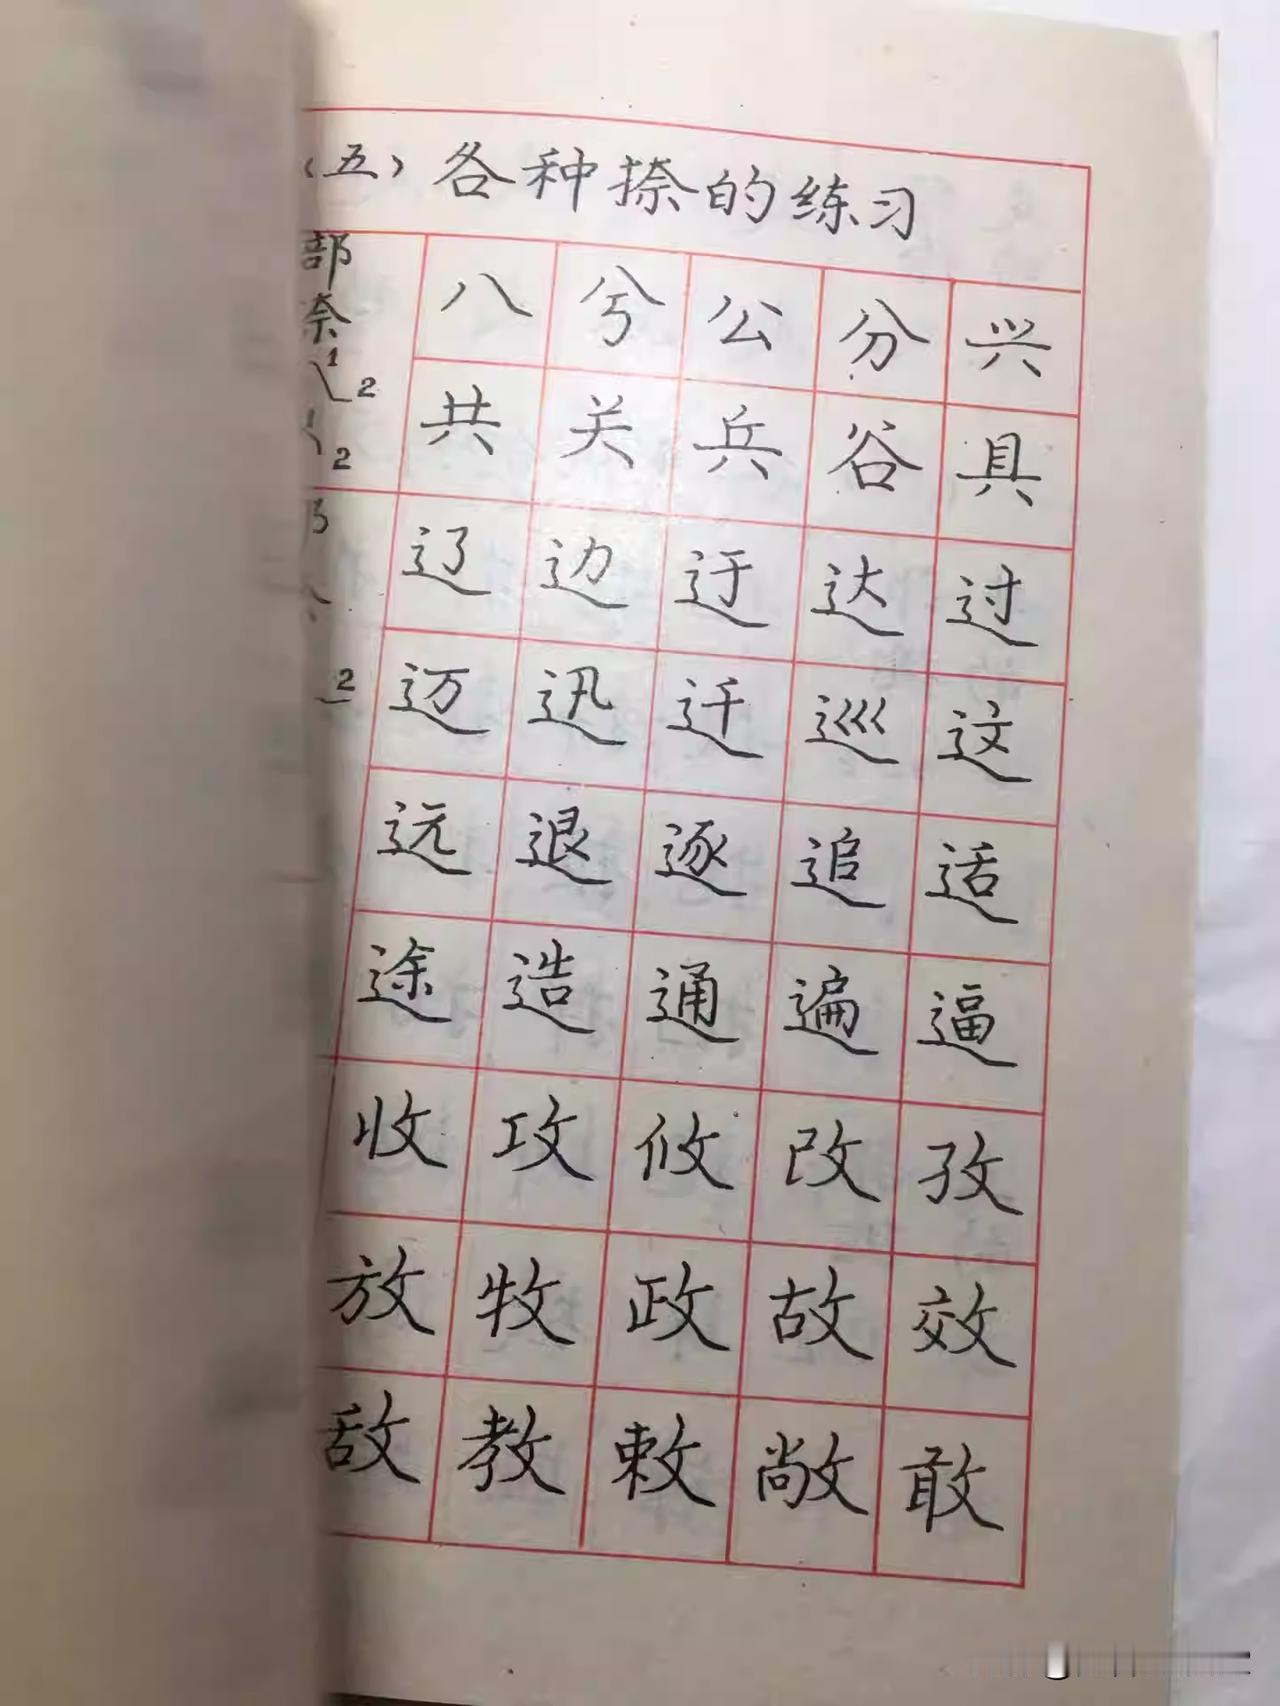 （五）各种捺的练习
部
1
2
2
2
八 兮 公 分 兴
共 关 兵 谷 具
辽 边 迂 达 过
迈 迅 迁 巡 这
远 退 逐 追 适
途 造 通 遍 逼
收 攻 攸 改 孜
放 牧 政 故 效
敌 教 敕 敞 敢